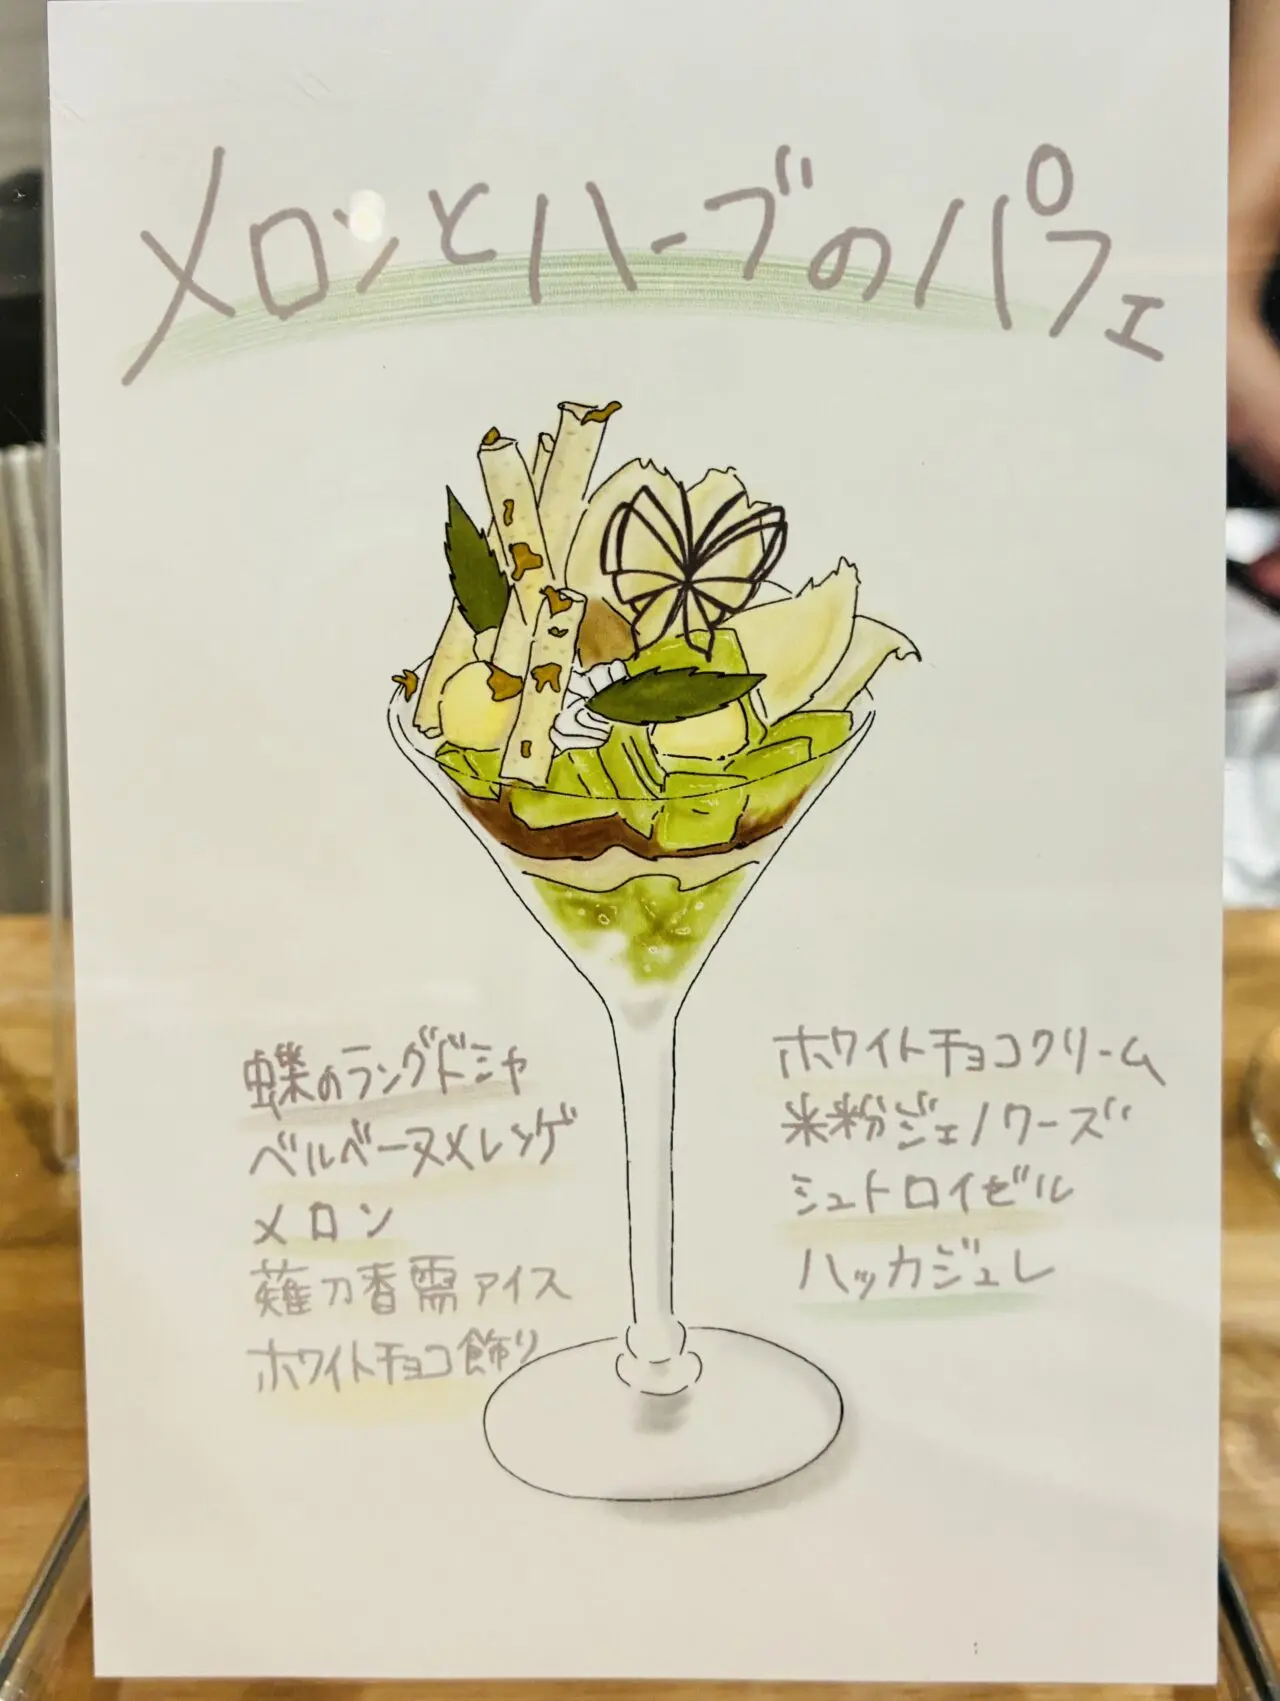 メロンとハーブのパフェ
蝶のラングドシャ
ベルベーヌメレンゲ
メロン
薙刀香需アイス
ホワイトチョコ飾り
ホワイトチョコクリーム
米粉ジェノワーズ
シュトロイゼル
ハッカジュレ